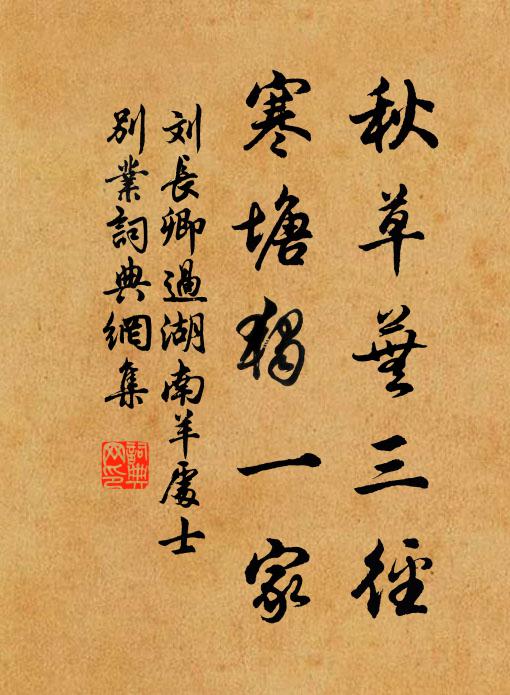 秋草蕪三徑
寒塘獨一家
刘長卿過湖南羊處士
别業詞典網集
詞典网印